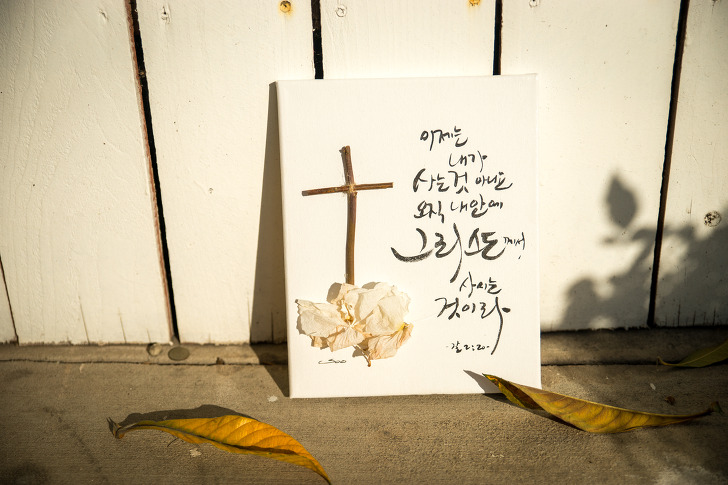 이제는
내가
사는것 아니요
오직 내안에
그리스도께서
사시는
것이라
-갈 2:20-